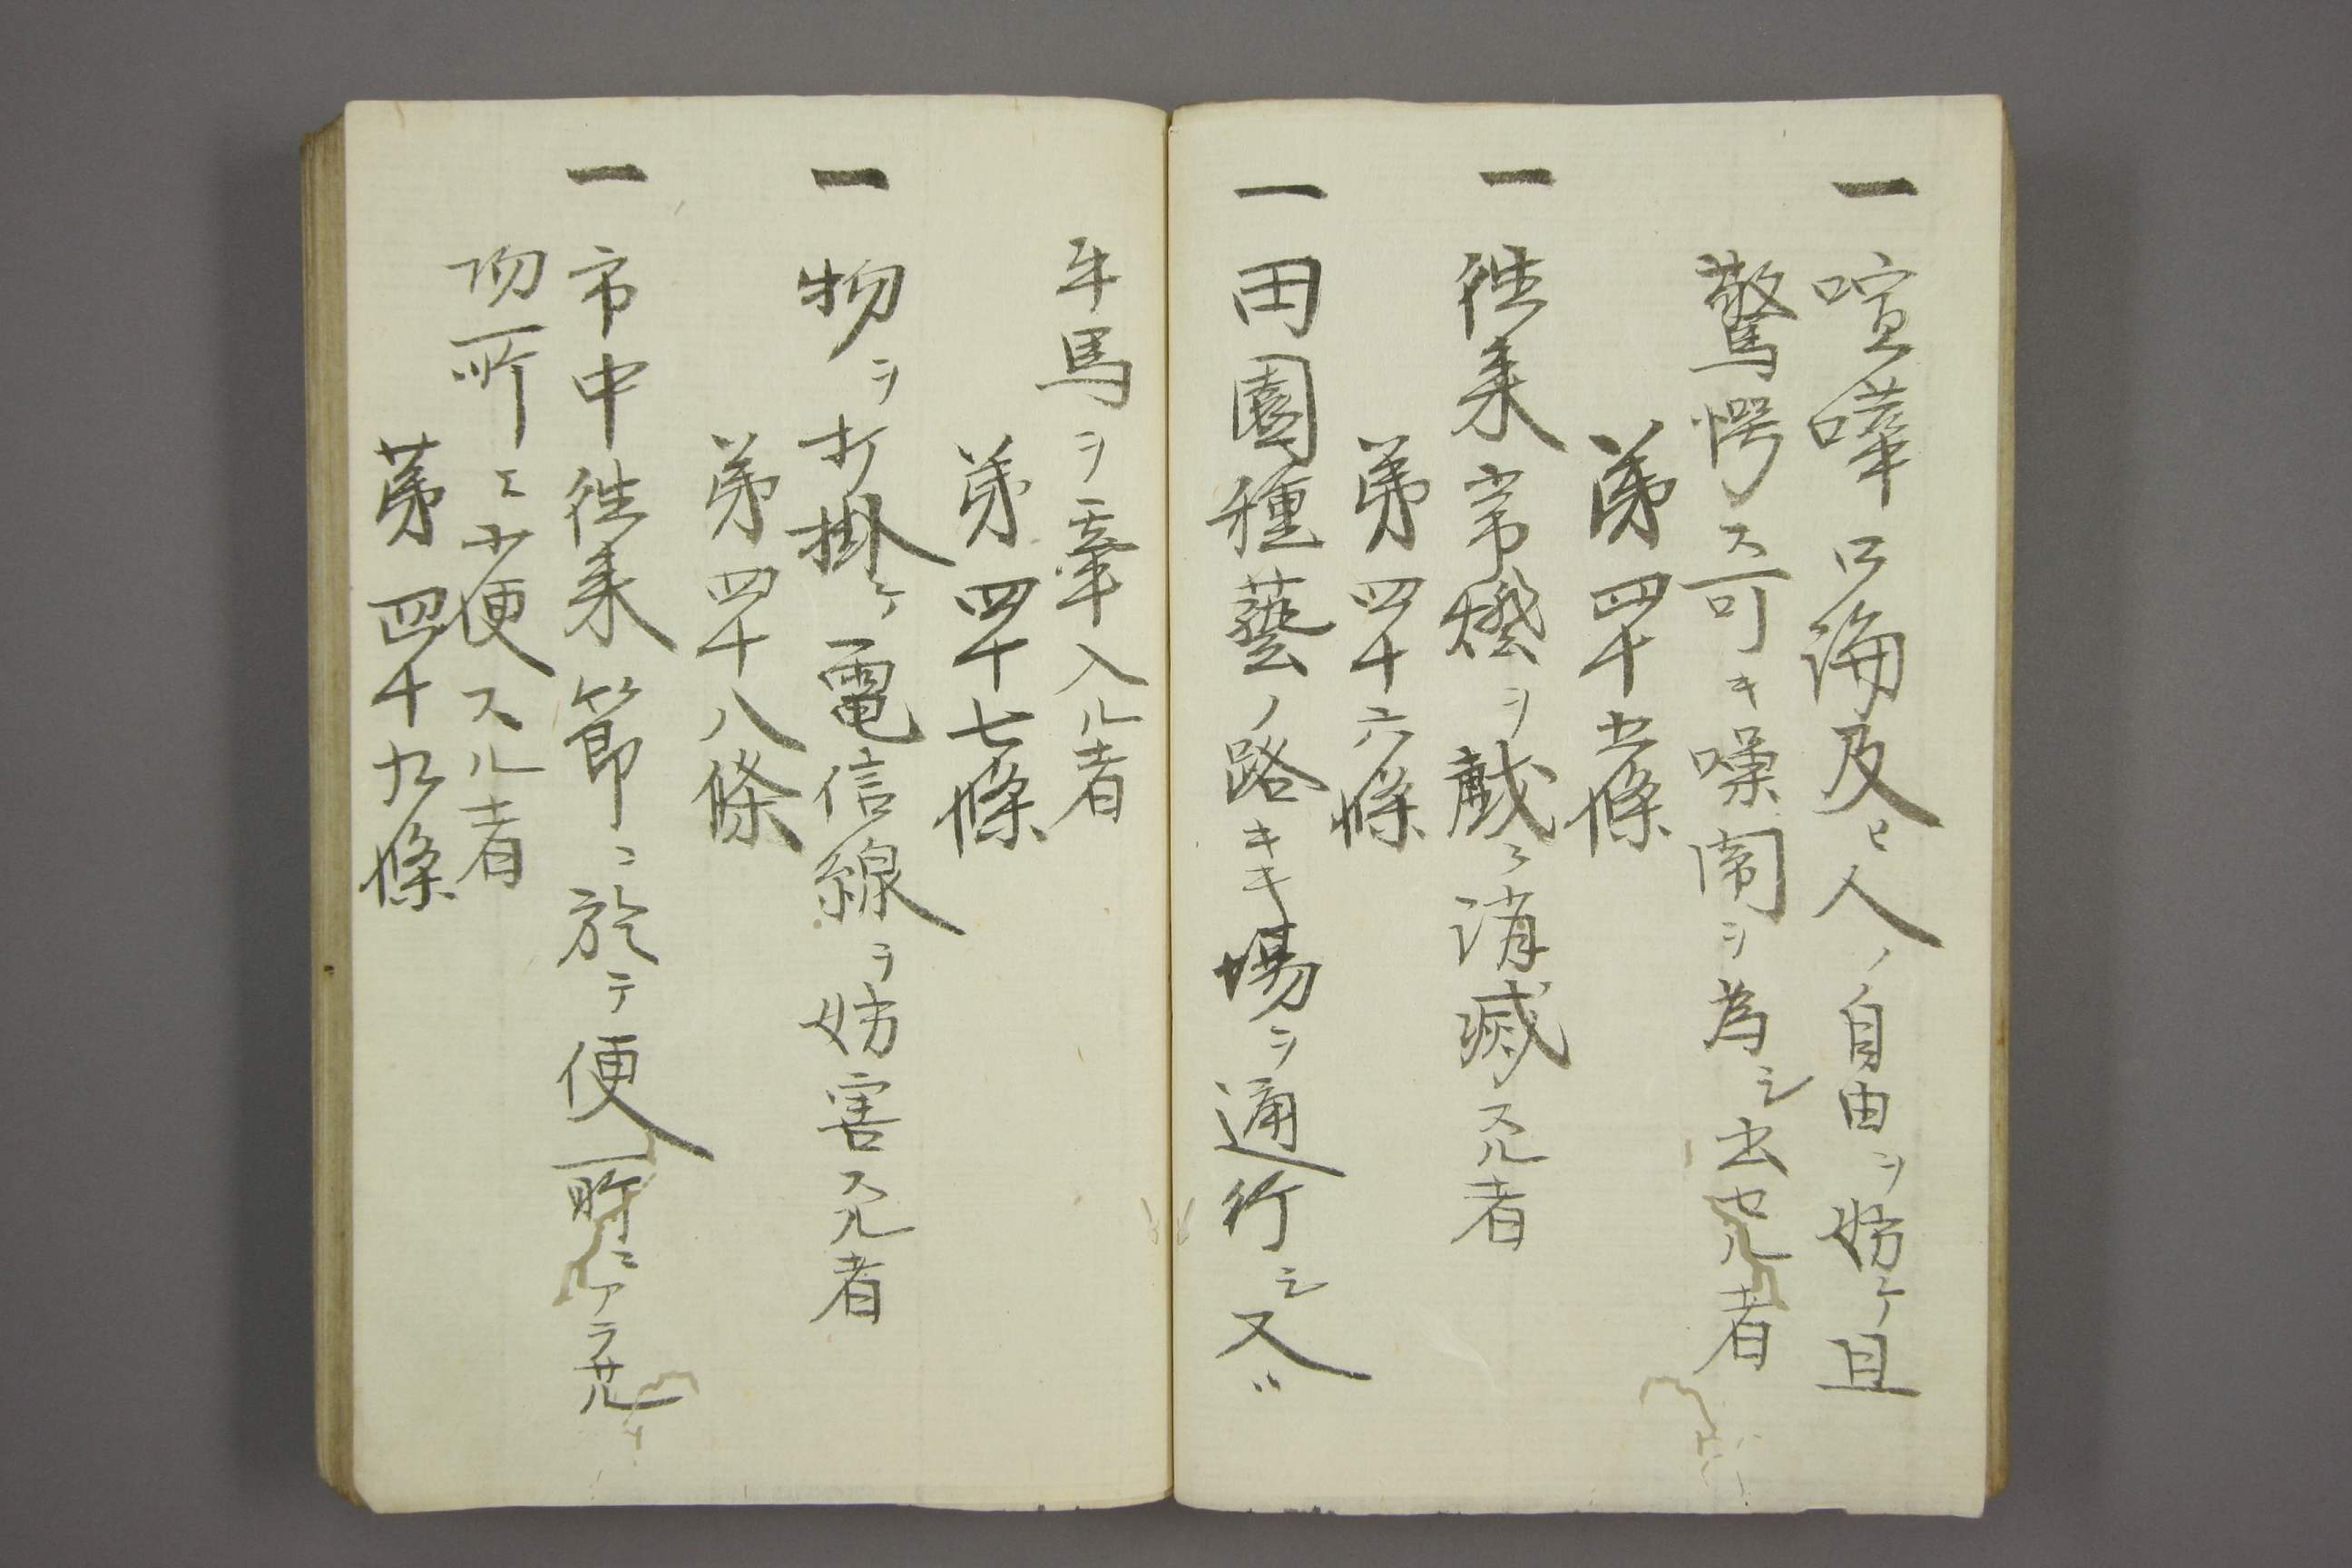 一 喧嘩口論及ヒ人ノ自由ヲ妨ケ且
驚愕ス可キ噪閙ヲ為シ出セル者
第四十五條
一 往来常燈ヲ戯ニ消滅スル者
第四十六條
一 田園種藝ノ路キキ場ヲ通行シ又ハ
牛馬ヲ牽入ル者
第四十七條
一 物ヲ打掛ケ電信線ヲ妨害スル者
第四十八條
一 市中往来節ニ於テ便所ニアラサル
場所エ小便スル者
第四十九條